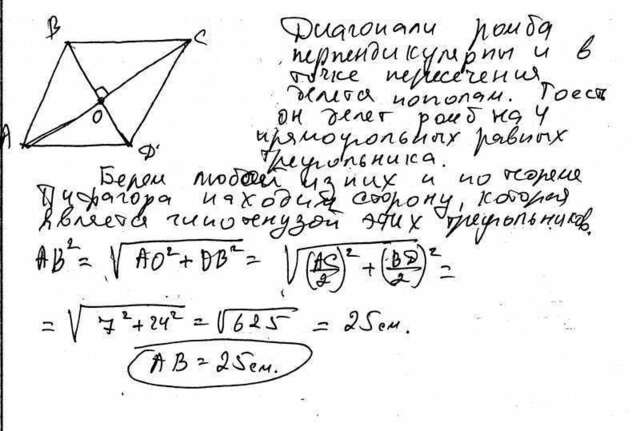 B
C
O
A
D
Диагонали ромба
перпендикулярны и в
точке пересечения
делета пополам. Тоесть
он делет ромб на 4
прямоугольных равных
треугольника.
Берем любой из них и по теореме
Пифагора находим сторону, которая
является гипотенузой этих треугольников.
AB² = √(AO² + OB²) = √((AC/2)² + (BD/2)²) =
= √(7² + 24²) = √625 = 25 см.
AB = 25 см.